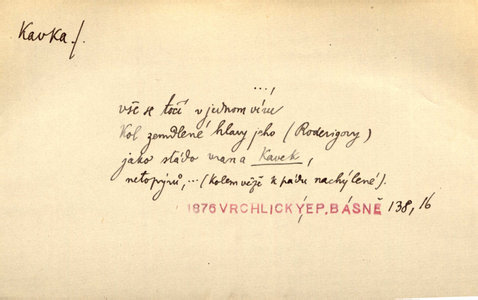 Kavka./.
...,
vše se točí v jednom víru
kol zemdlené hlavy jeho (Roderigovy)
jako stádo vran a kavek,
netopýrů,...(kolem věží k pádu nachýlené).
1876 VRCHLICKÝ EP. BÁSNĚ 138, 16